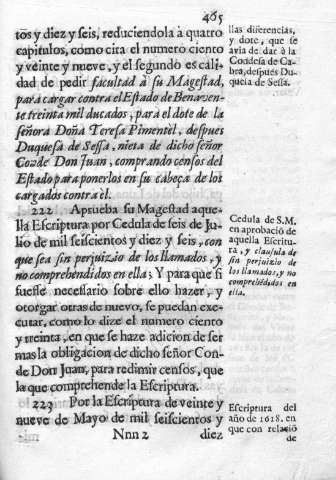 465
tos y diez y seis, reduciendola à quatro
capitulos, como cita el numero ciento
y veinte y nueve, y el segundo es cali-
dad de pedir facultad à su Magestad,
para cargar contra el Estado de Benaven-
te treinta mil ducados, para el dote de la
señora Doña Teresa Pimentèl, despues
Duquesa de Sessa, nieta de dicho señor
Conde Don Juan, comprando censos del
Estado para ponerlos en su cabeça de los
cargados contra èl.
222 Aprueba su Magestad aque-
lla Escriptura por Cedula de seis de Ju-
lio de mil seiscientos y diez y seis, con
que sea sin perjuizio de los llamados, y
no comprehendidos en ella; Y para que si
fuesse necessario sobre ello hazer, y
otorgar otras de nuevo, se puedan exe-
cutar, como lo dize el numero ciento
y treinta, en que se haze adicion de ser
mas la obligacion de dicho señor Con-
de Don Juan, para redimir censos, que
la que comprehende la Escriptura.
223 Por la Escriptura de veinte y
nueve de Mayo de mil seiscientos y
Nnn 2 diez
llas diferencias,
y dote, que se
avia de dàr à la
Condesa de Ca-
bra, despues Du-
quesa de Sessa.
Cedula de S.M.
en aprobació de
aquella Escritu-
ra, y clausula de
sin perjuizio de
los llamados, y no
comprehédidos en
ella.
Escriptura del
año de 1618. en
que con relació
de